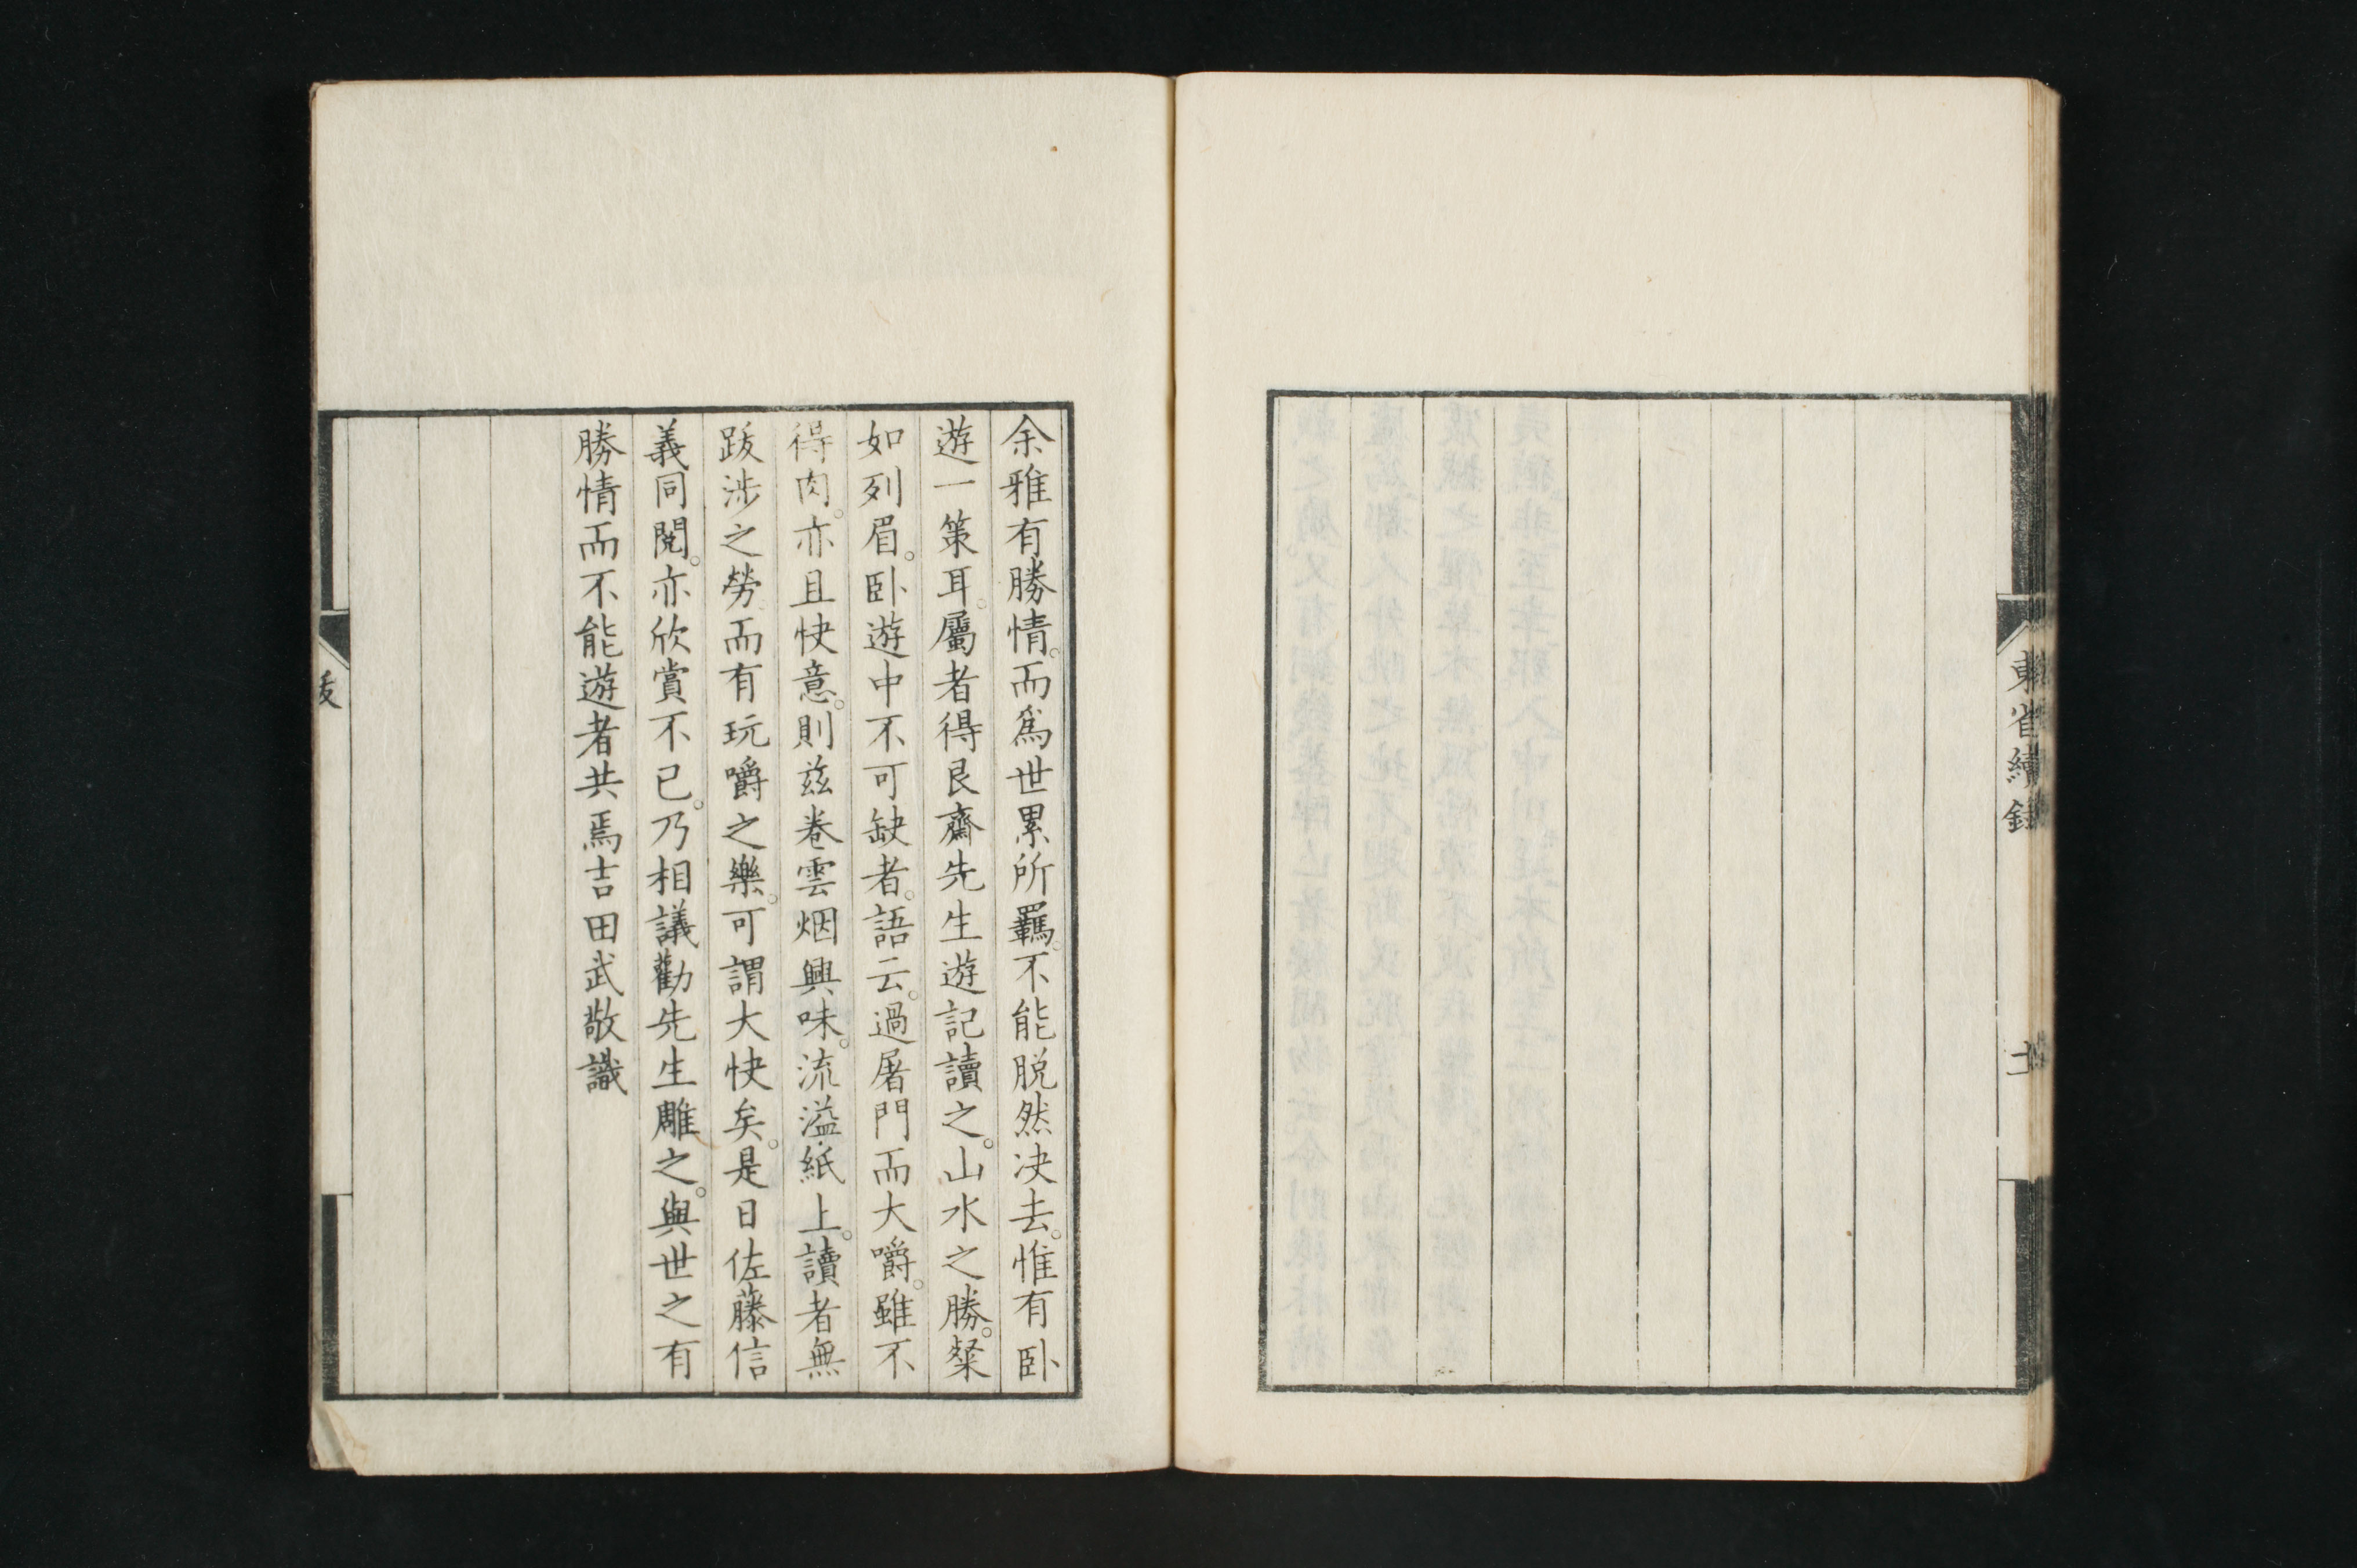 東省續録
十一
余雅有勝情。而爲世累所羈。不能脱然决去。惟有卧
遊一策耳。屬者得艮齋先生遊記讀之。山水之勝。粲
如列眉。卧遊中不可缺者。語云。過屠門而大嚼。雖不
得肉。亦且快意。則茲卷雲烟興味。流溢紙上。讀者無
跋涉之勞。而有玩嚼之樂。可謂大快矣。是日佐藤信
義同閲。亦欣賞不已。乃相議勸先生雕之。與世之有
勝情而不能遊者共焉吉田武敬識